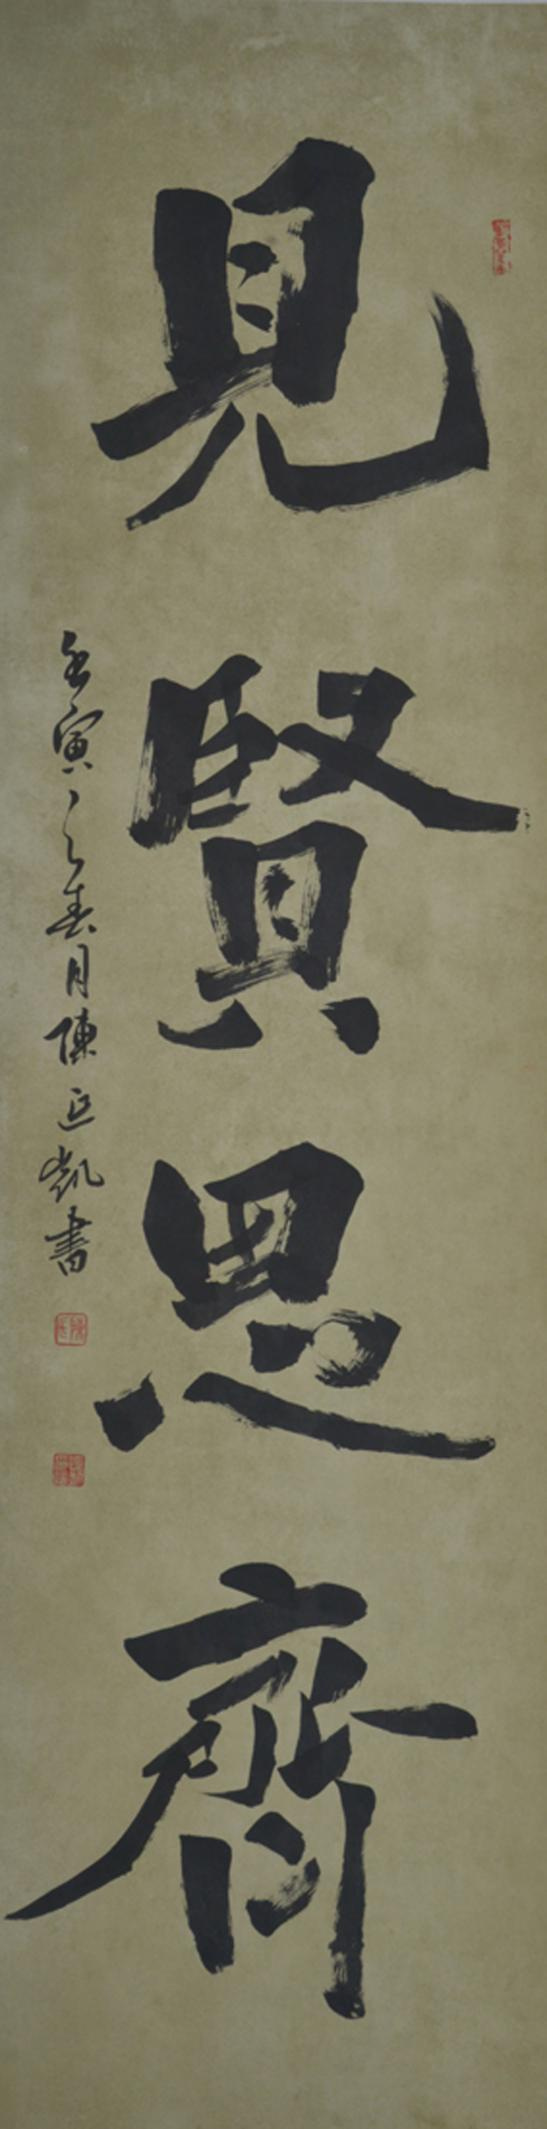 見賢思齊
壬寅之春月陳延凱書